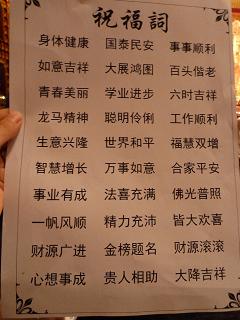 祝福詞
身体健康 国泰民安 事事顺利
如意吉祥 大展鸿图 百头偕老
青春美丽 学业进步 六时吉祥
龙马精神 聪明伶俐 工作顺利
生意兴隆 世界和平 福慧双增
智慧增长 万事如意 合家平安
事业有成 法喜充满 佛光普照
一帆风顺 精力充沛 皆大欢喜
财源广进 金榜题名 财源滚滚
心想事成 贵人相助 大降吉祥